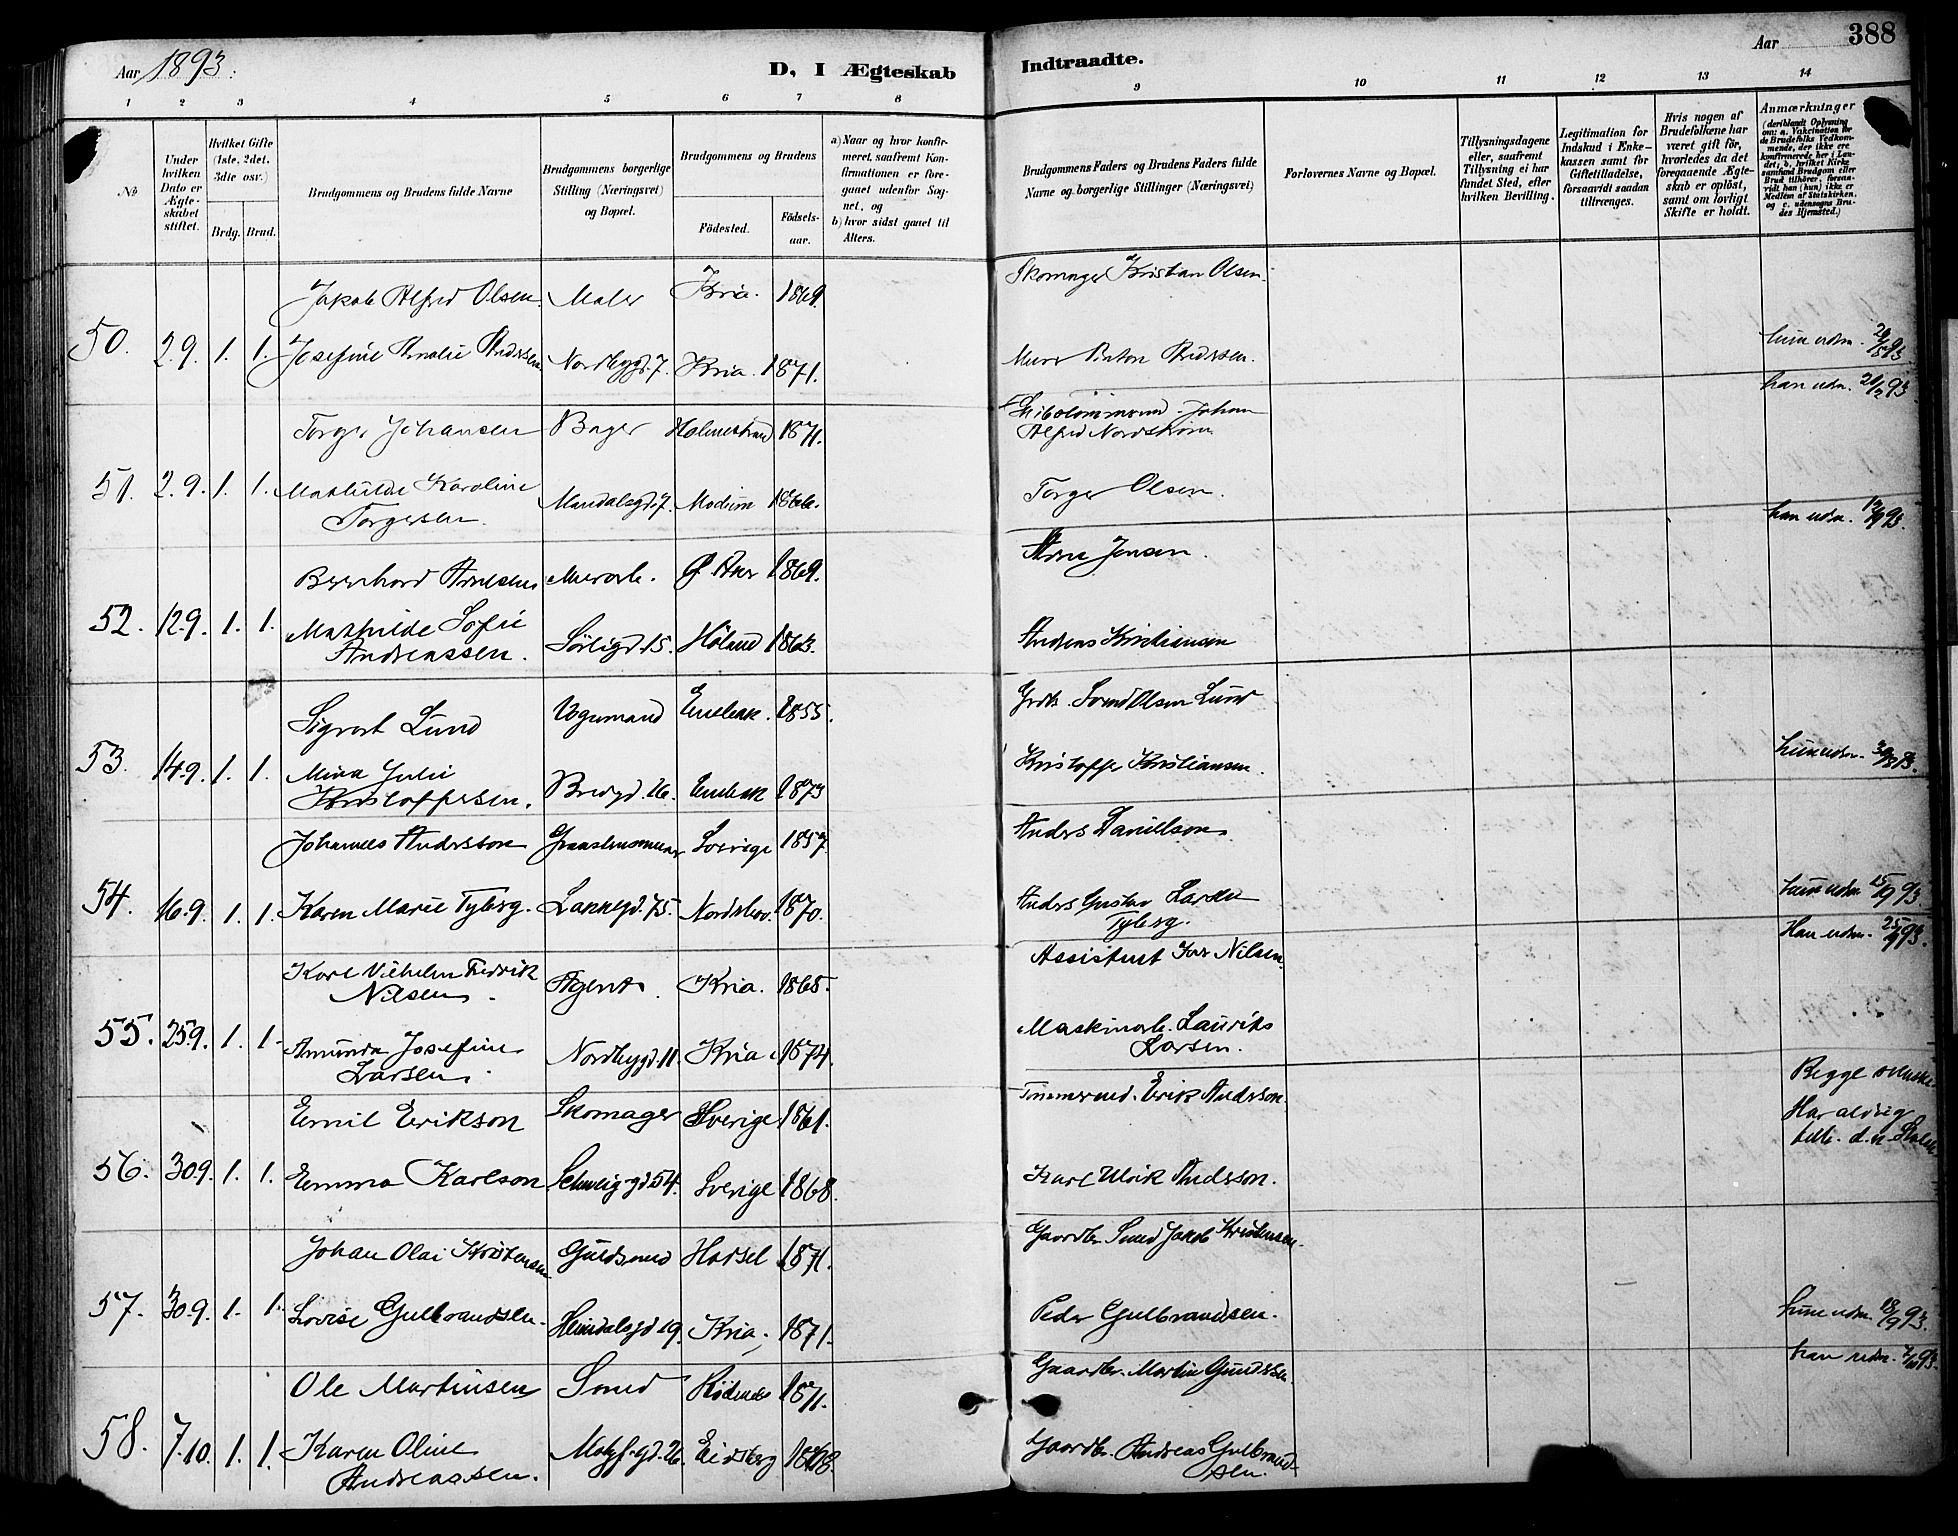 Aar 1893.
D, I Ægteskab
Indtraadte.
Aar
388
1 2 3 4 5 6 7 8 9 10 11 12 13 14
No
Under hvilken Dato er Ægteskabet stiftet.
Hvilket Gifte (1ste, 2det, 3die osv.)
Brdg. Brud.
Brudgommens og Brudens fulde Navne
Brudgommens borgerlige Stilling (Næringsvei) og Bopæl.
Brudgommens og Brudens
Födested.
Födselsaar.
a) Naar og hvor konfirmeret, saafremt Konfirmationen er foregaaet udenfor Sognet, og
b) hvor sidst gaaet til Alters.
Brudgommens Faders og Brudens Faders fulde Navne og borgerlige Stillinger (Næringsvei)
Forlovernes Navne og Bopæl.
Tillysningsdagene eller, saafremt Tillysning ei har fundet Sted, efter hvilken Bevilling.
Legitimation for Indskud i Enkekassen samt for Giftetilladelse, forsaavidt saadan tiltrænges.
Hvis nogen af Brudefolkene har været gift før, hvorledes da det foregaaende Ægteskab er opløst, samt om lovligt Skifte er holdt.
Anmærkninger (deriblandt Oplysning om: a. Vakcination for de Brudefolks Vedkommende, der ikke ere konfirmerede her i Landet, b. hvilket Kirkesamfund Brudgom eller Brud tilhører, forsaavidt han (hun) ikke er Medlem af Statskirken, og c. udensogns Brudes Hjemsted.)
Jakob Alfred Olsen. Maler Kria. 1869. Skomager Kristian Olsen.
50. 2.9. 1. 1. Josefine Amalie Andersen Nordbygd. 7. Kria. 1871. Murer Anton Andersen. hun udm.
Torger Johansen Bager Holmestrand 1871. Johan Alfred Nordstrøm han udm.
51. 2.9. 1. 1. Mathilde Karoline Torgersen. Mandalsgd. 7. Modum 1866. Torger Olsen.
Bernhard Arnesen Murarb. Ø. Aker 1869. Arne Jensen. han udm.
52. 12.9. 1. 1. Mathilde Sofie Andreassen. Sørligd. 15. Høland 1863. Andreas Kristiansen
Sigvart Lund Vognmand Enebak. 1855. Grdb. Svend Olsen Lund
53. 14.9. 1. 1. Mina Julie Kristoffersen. Bredgd. 26. Enebak 1873 Kristoffer Kristiansen. hun udm.
Johannes Andersson Sverige 1857. Anders Danielson.
54. 16.9. 1. 1. Karen Marie Tyberg. Lakkegd. 75. Nordskov. 1870. Anders Gustav Larsen Tyberg. hun udm.
Karl Vilhelm Fredrik Nilsen. Agent. Kria. 1865. Assistent Nilsen. Han udm.
55. 25.9. 1. 1. Amunda Josefine Larsen. Nordbygd. 11. Kria. 1874. Maskinarb. Laurits Larsen.
Emil Erikson Skomager Sverige 1861. Tømmermd. Erik Anderson. Begge svenske
Har aldrig
56. 30.9. 1. 1. Emma Karlson Schweigd. 54. Sverige 1868. Karl Ulrik Anderson.
Johan Olai Kristensen Guldsmed Hadsel 1871. Gaardbr. Smed Jakob Kristensen.
57. 30.9. 1. 1. Lovise Gulbrandsen. Heimdalsgd. 19. Kria. 1871. Peder Gulbrandsen. hun udm. 18/9 93.
Ole Martinsen Smed Rødenes 1871. Gaardbr. Martin han udm.
58. 7.10. 1. 1. Karen Oline Andreassen. Motzf.gd. 26. Eidsberg 1868. Gaardbr. Andreas Gulbrandsen.